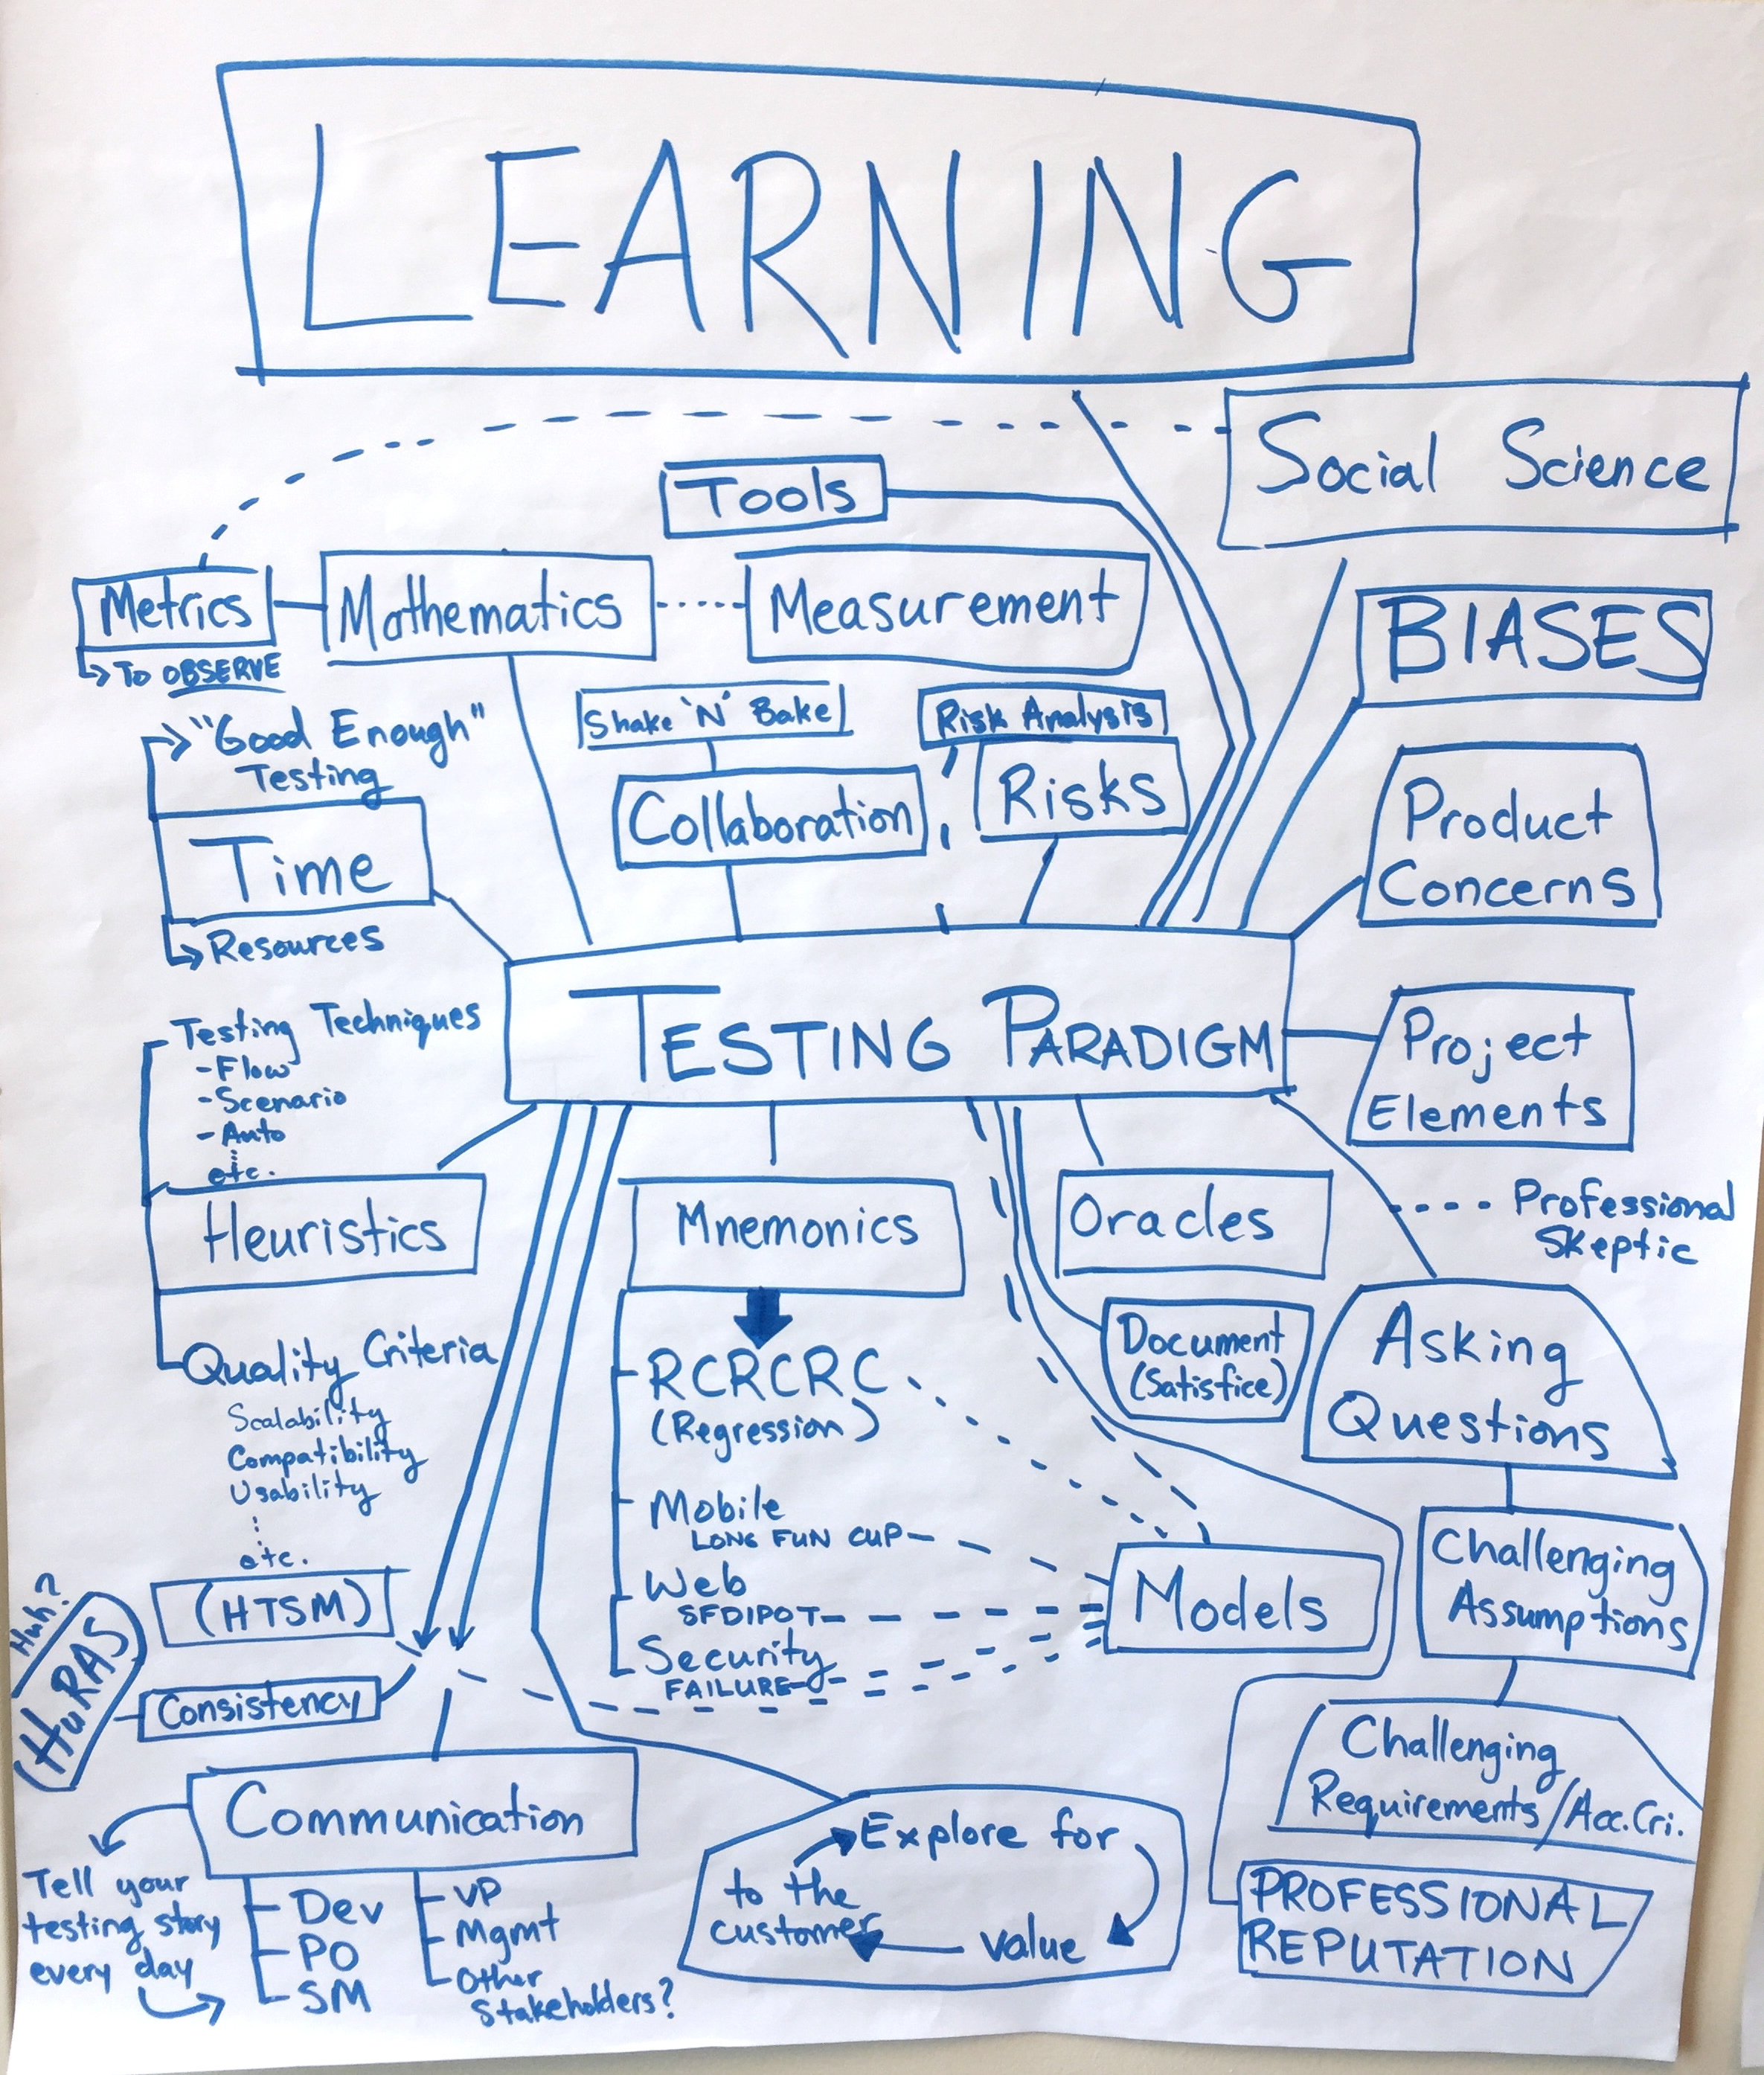 LEARNING
Social Science
Tools
Metrics
Mathematics
Measurement
BIASES
↳ To OBSERVE
Shake 'N' Bake
Risk Analysis
"Good Enough"
Testing
Collaboration
Risks
Product
Concerns
Time
Resources
TESTING PARADIGM
Project
Elements
Testing Techniques
-Flow
-Scenario
-Auto
etc.
Heuristics
Mnemonics
Oracles
Professional
Skeptic
Quality Criteria
Scalability
Compatibility
Usability
etc.
(HTSM)
RCRCRC
(Regression)
Mobile
LONG FUN CUP
Web
SFDIPOT
Security
FAILURE
Document
(Satisfice)
Asking
Questions
Models
Challenging
Assumptions
Huh?
(HuRAS)
Consistency
Challenging
Requirements/Acc.Cri.
Communication
Tell your
testing story
every day
Dev
PO
SM
VP
Mgmt
Other
Stakeholders?
Explore for
value
to the
customer
PROFESSIONAL
REPUTATION